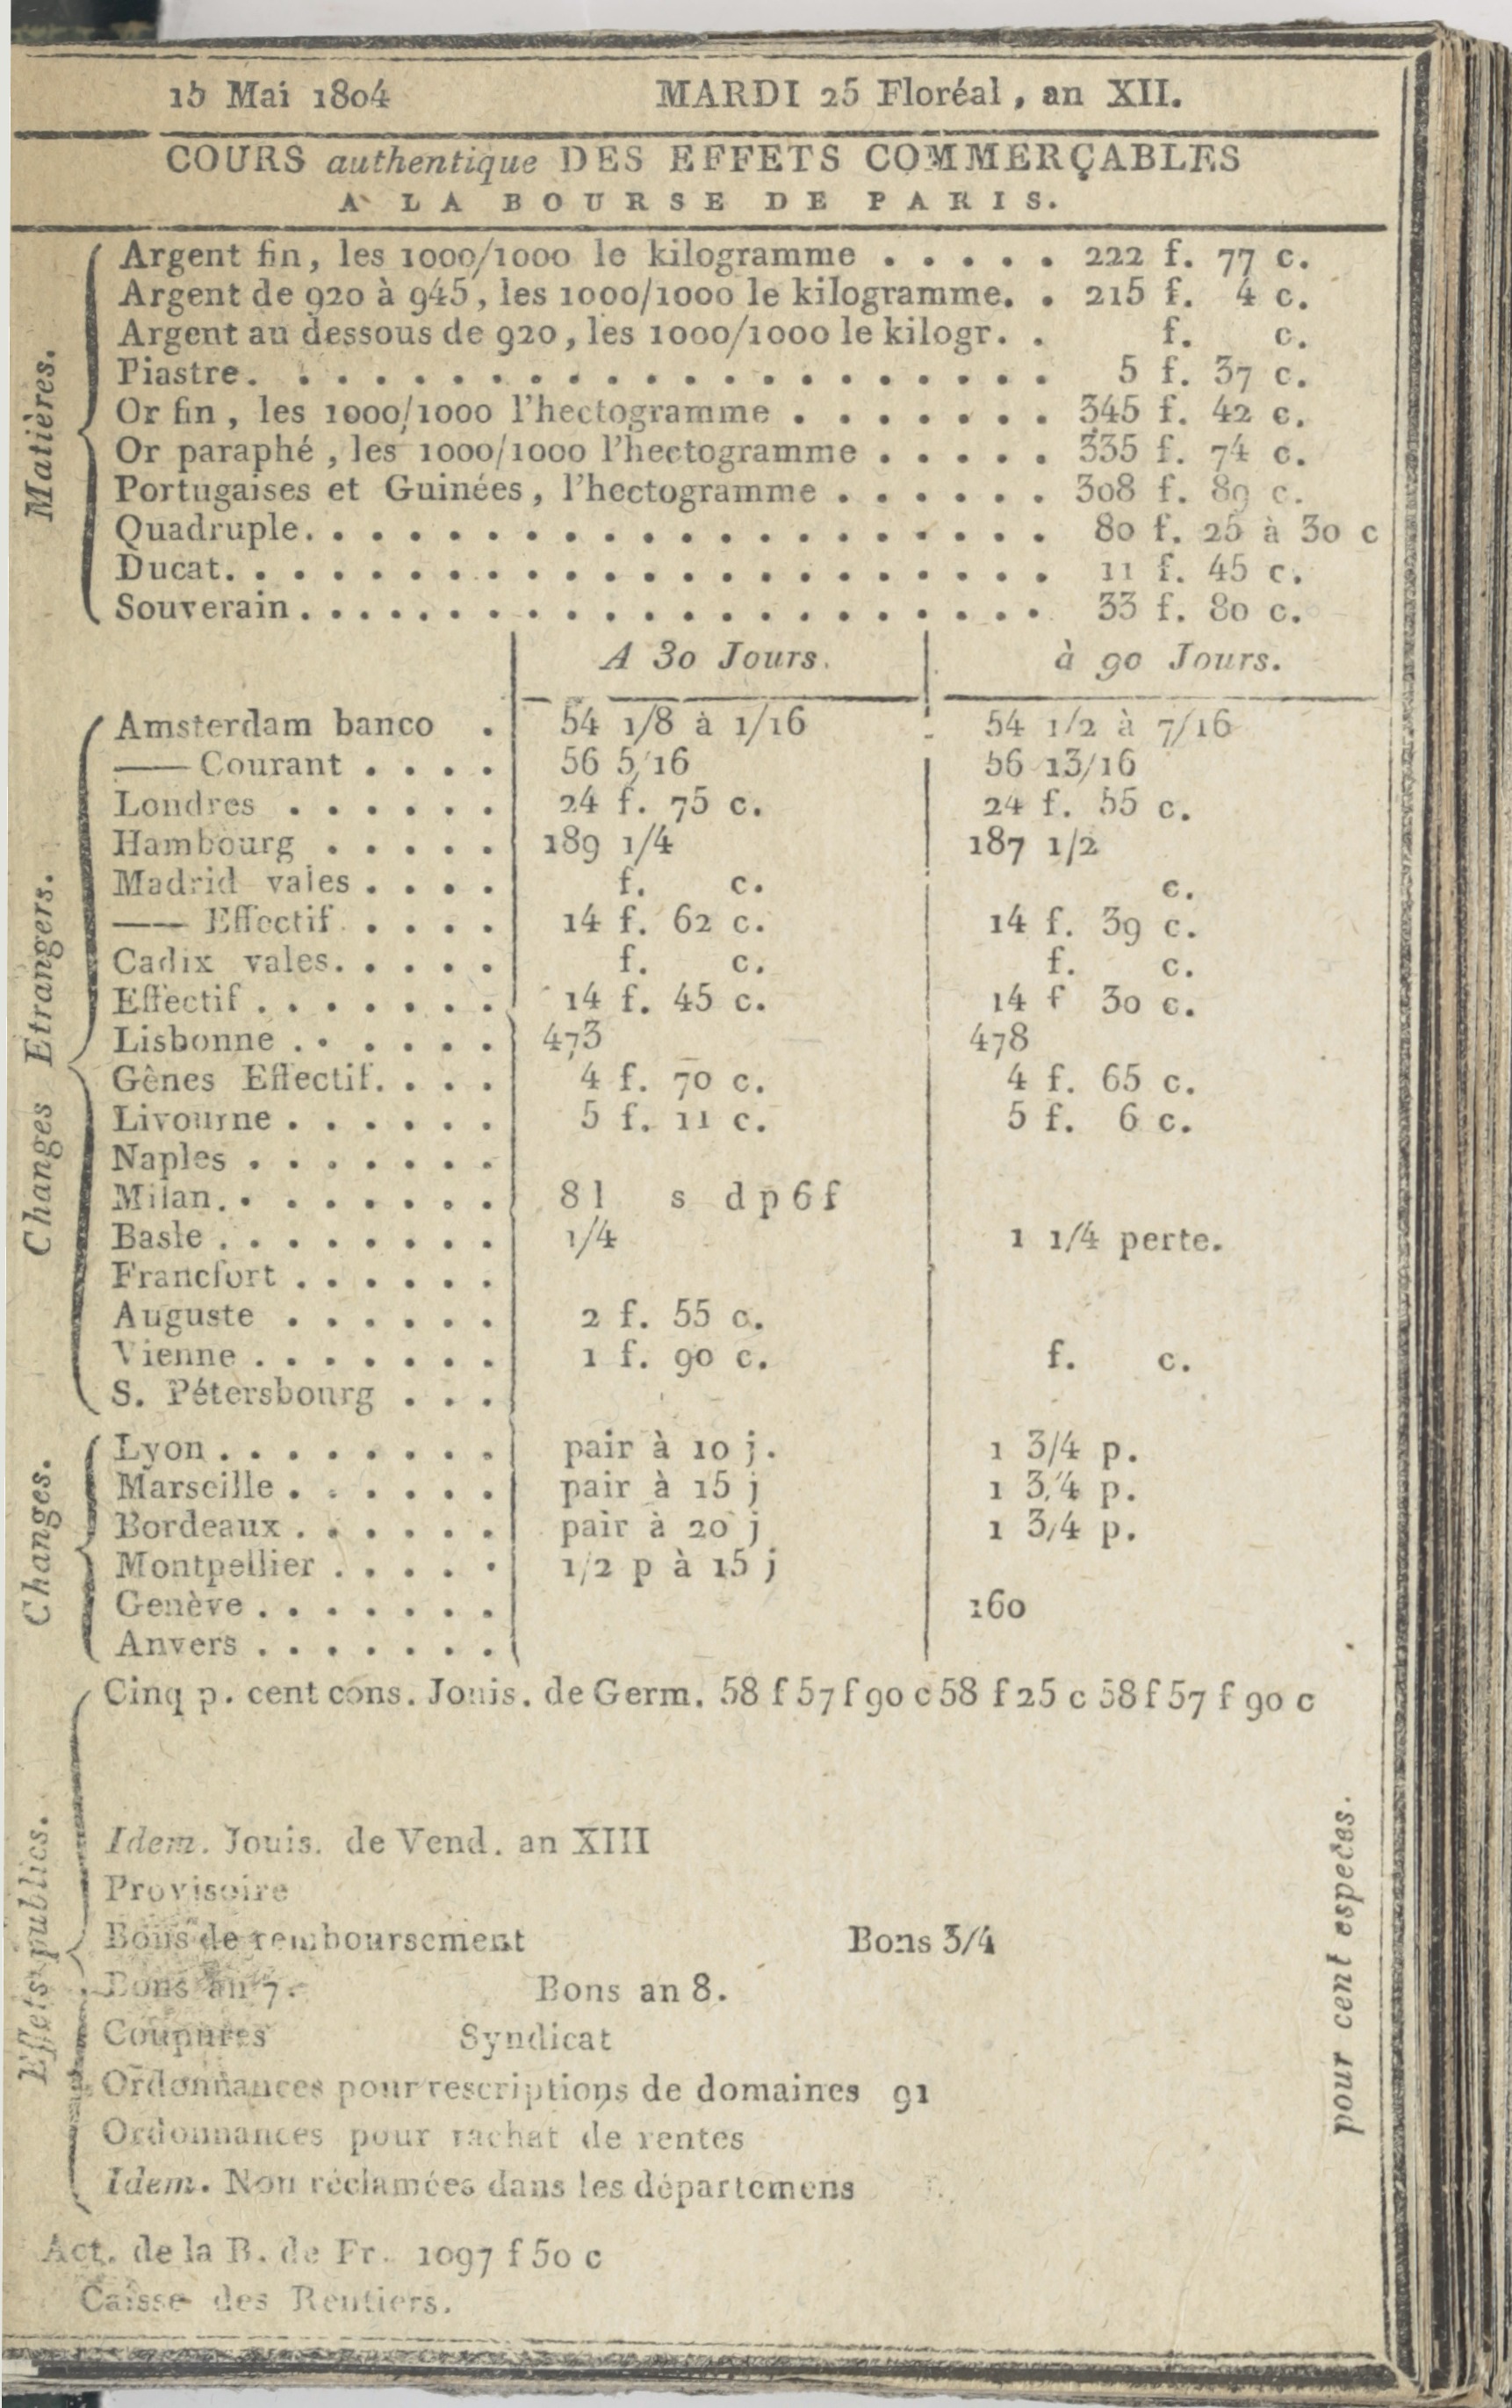 15 Mai 1804 MARDI 25 Floréal, an XII.
COURS authentique DES EFFETS COMMERÇABLES
A LA BOURSE DE PARIS.
Matières.
Argent fin, les 1000/1000 le kilogramme . . . . . 222 f. 77 c.
Argent de 920 à 945, les 1000/1000 le kilogramme. . 215 f. 4 c.
Argent au dessous de 920, les 1000/1000 le kilogr. . f. c.
Piastre. . . . . . . . . . . . . . . . . . . . . 5 f. 37 c.
Or fin, les 1000/1000 l'hectogramme . . . . . . . 345 f. 42 c.
Or paraphé, les 1000/1000 l'hectogramme . . . . . 335 f. 74 c.
Portugaises et Guinées, l'hectogramme . . . . . . 308 f. 89 c.
Quadruple. . . . . . . . . . . . . . . . . . . . 80 f. 25 à 30 c
Ducat. . . . . . . . . . . . . . . . . . . . . . 11 f. 45 c.
Souverain. . . . . . . . . . . . . . . . . . . . 33 f. 80 c.
A 30 Jours. à 90 Jours.
Changes Etrangers.
Amsterdam banco . 54 1/8 à 1/16 54 1/2 à 7/16
—— Courant . . . . 56 5/16 56 13/16
Londres . . . . . . 24 f. 75 c. 24 f. 55 c.
Hambourg . . . . . 189 1/4 187 1/2
Madrid vales . . . . f. c. c.
—— Effectif . . . . 14 f. 62 c. 14 f. 39 c.
Cadix vales. . . . . f. c. f. c.
Effectif . . . . . . . 14 f. 45 c. 14 f 30 c.
Lisbonne . . . . . . 473 478
Gênes Effectif. . . . 4 f. 70 c. 4 f. 65 c.
Livourne . . . . . . 5 f. 11 c. 5 f. 6 c.
Naples . . . . . . .
Milan. . . . . . . . 8 l s d p 6 f
Basle . . . . . . . . 1/4 1 1/4 perte.
Francfort . . . . . .
Auguste . . . . . . 2 f. 55 c.
Vienne . . . . . . . 1 f. 90 c. f. c.
S. Pétersbourg . . .
Changes.
Lyon . . . . . . . . pair à 10 j. 1 3/4 p.
Marseille . . . . . . pair à 15 j 1 3/4 p.
Bordeaux . . . . . . pair à 20 j 1 3/4 p.
Montpellier . . . . . 1/2 p à 15 j
Genève . . . . . . . 160
Anvers . . . . . . .
Effets publics.
Cinq p. cent cons. Jouis. de Germ. 58 f 57 f 90 c 58 f 25 c 58 f 57 f 90 c
Idem. Jouis. de Vend. an XIII
Provisoire
Bons de remboursement Bons 3/4
Bons an 7. Bons an 8.
Coupures Syndicat
Ordonnances pour rescriptions de domaines 91
Ordonnances pour rachat de rentes
Idem. Non réclamées dans les départemens
pour cent espèces.
Act. de la B. de Fr. 1097 f 50 c
Caisse des Rentiers.